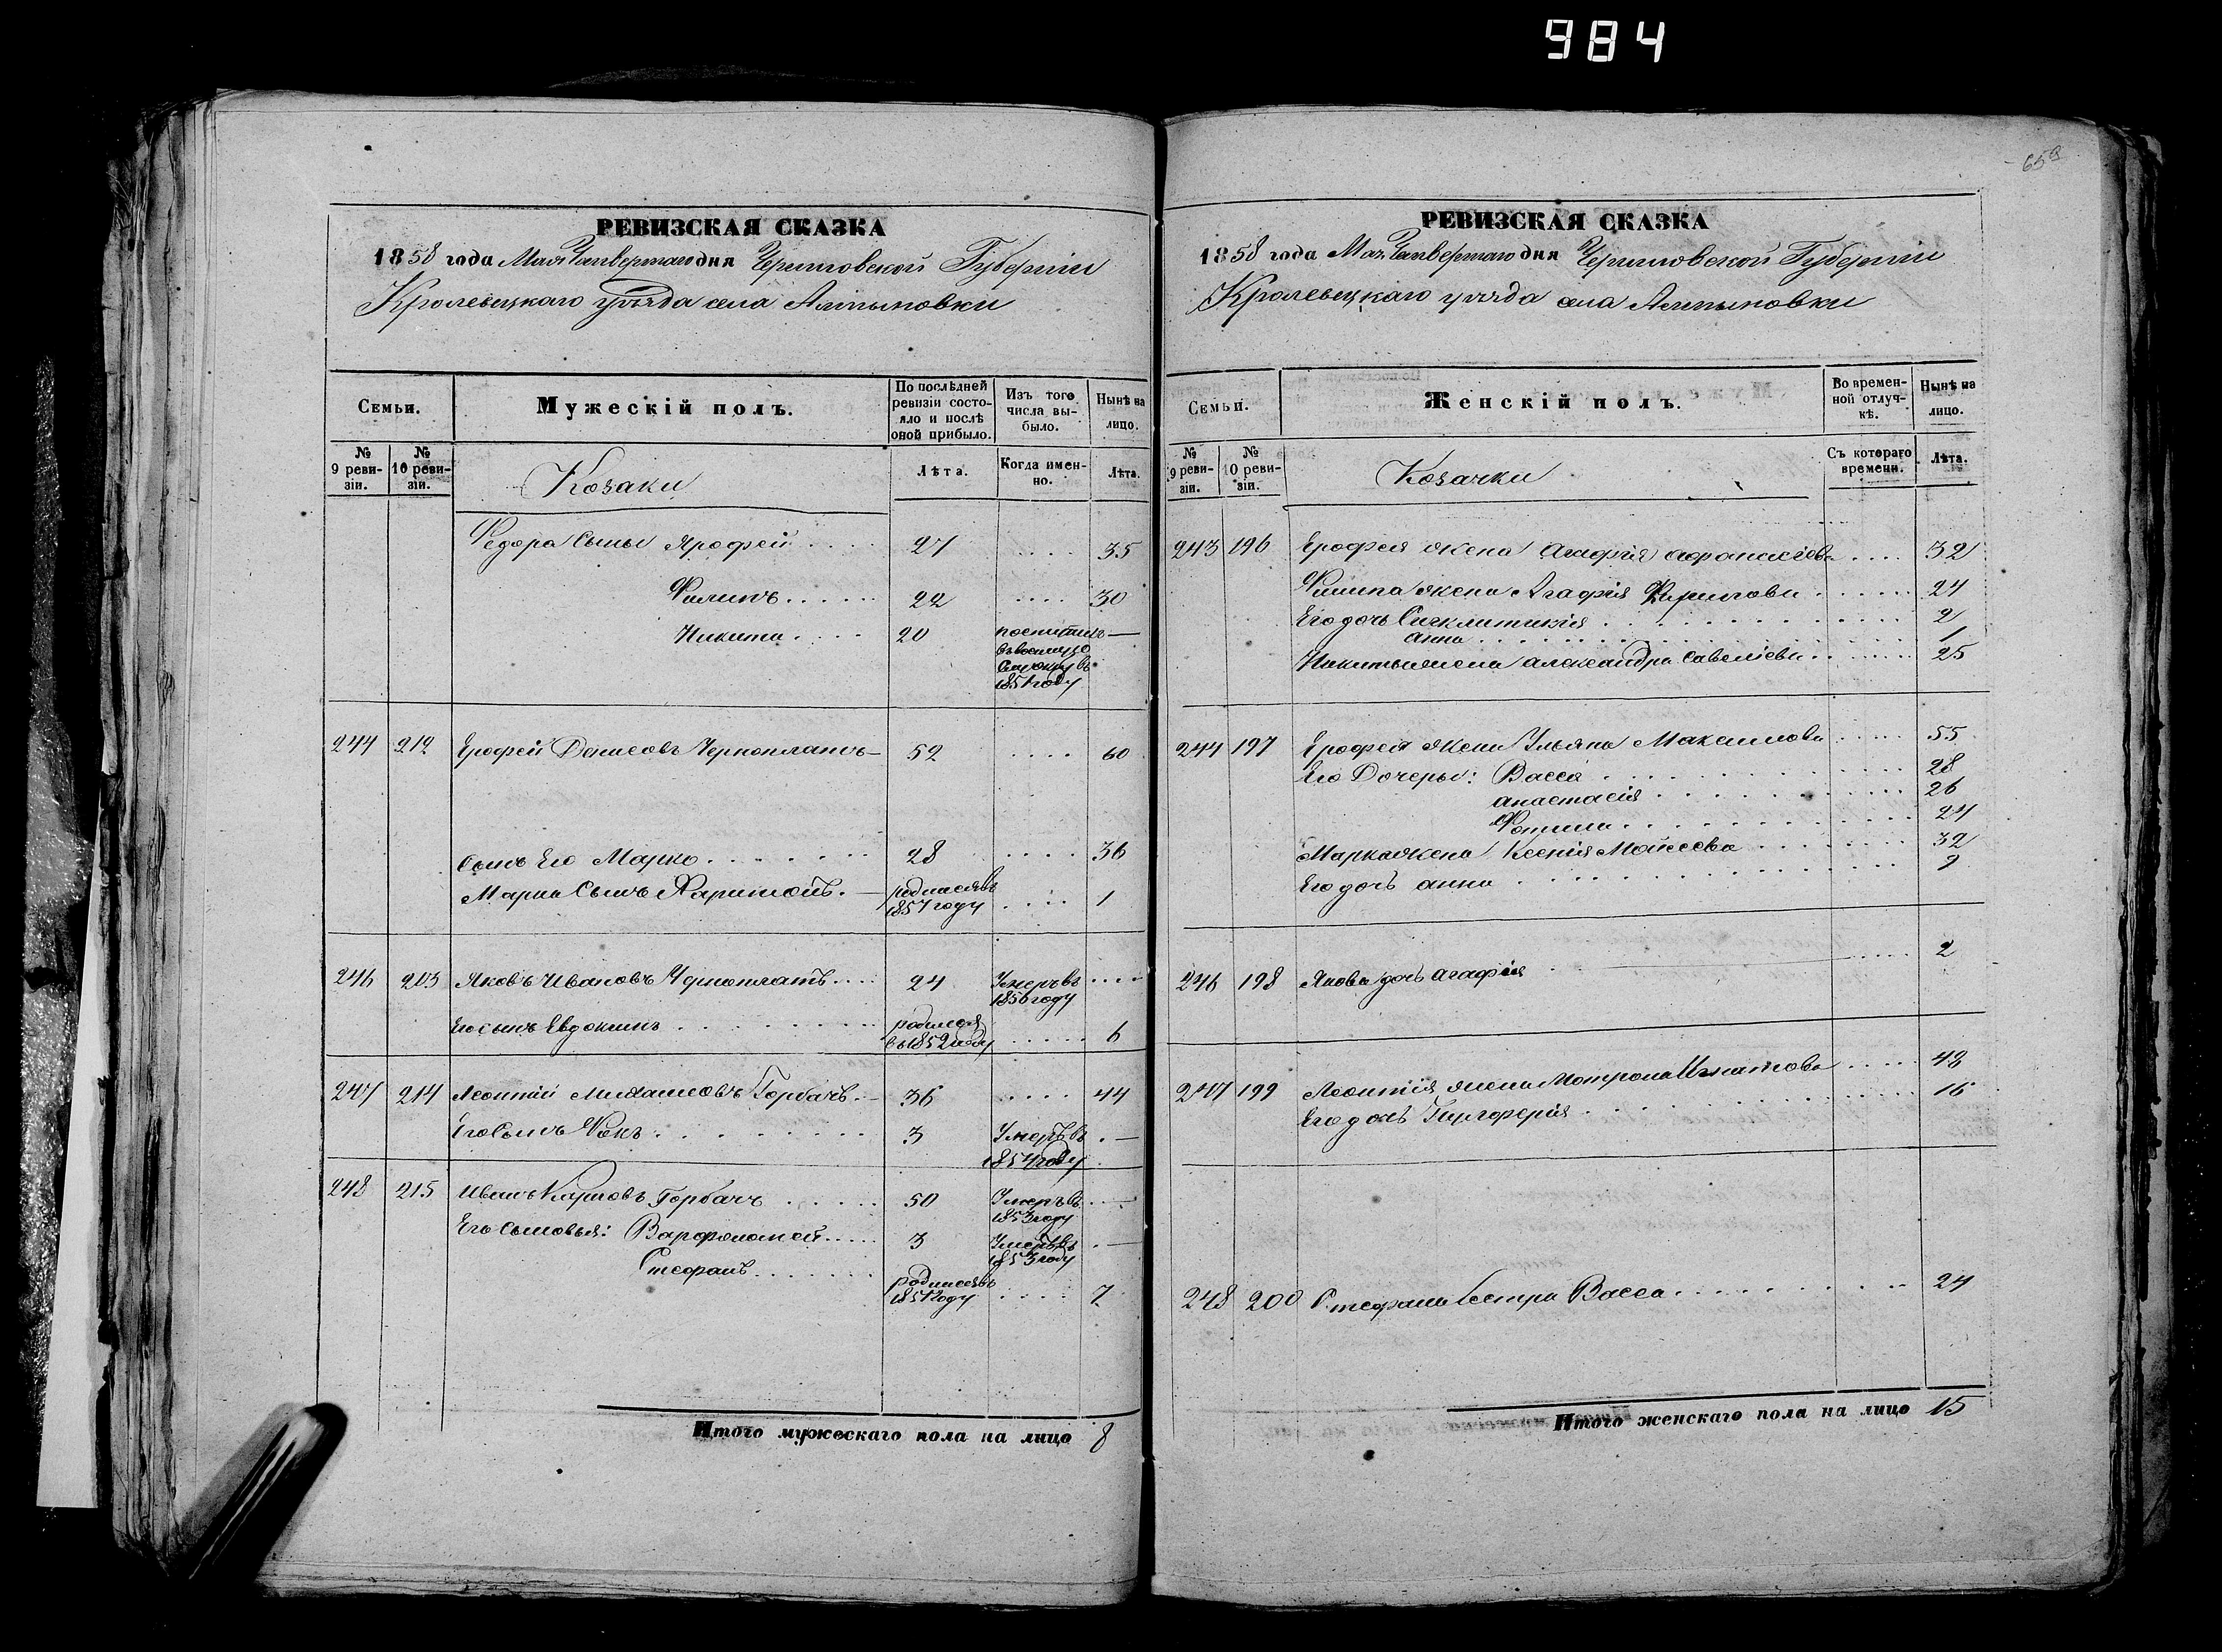 984
659
РЕВИЗСКАЯ СКАЗКА
1858 года Мая Четвертаго дня Черниговской Губерніи
Кролевецкаго уѣзда села Алтыновки
Семьи.
Мужескій полъ.
По послѣдней ревизіи состояло и послѣ оной прибыло.
Изъ того числа выбыло.
Нынѣ на лицо.
№ 9 ревизіи.
№ 10 ревизіи.
Козаки
Лѣта.
Когда именно.
Лѣта.
Федора Сыны Ярофей 27 35
Филипъ 22 30
Никита 20 поступилъ —
въ военную
службу въ
1851 году
244 212 Ерофей Денисовъ Чернопляшъ 52 60
Сынъ Его Марко 28 36
Марка Сынъ Харитонъ родился въ
1857 году 1
246 213 Яковъ Ивановъ 24 Умеръ въ
1856 году
Его сынъ Евдокимъ родился
въ 1852 году 6
247 214 Леонтій Михайловъ Горбачъ 36 44
Его Сынъ Фокъ 3 Умеръ въ —
1854 году
248 215 Иванъ Карповъ Горбачъ 50 Умеръ въ —
1853 году
Его Сыновья: Варфоломей 3 Умеръ въ —
1853 году
Стефанъ родился въ
1851 году 7
Итого мужескаго пола на лицо 8
РЕВИЗСКАЯ СКАЗКА
1858 года Мая Четвертаго дня Черниговской Губерніи
Кролевецкаго уѣзда села Алтыновки
Семьи.
Женскій полъ.
Во временной отлучкѣ.
Нынѣ на лицо.
№ 9 ревизіи.
№ 10 ревизіи.
Козачки
Съ котораго времени.
Лѣта.
243 196 Ерофея жена Агафія Афанасіева 32
Филипа жена Агафія 24
Его дочь Сигклитикія 2
Анна 1
Никиты жена Александра Савеліева 25
244 197 Ерофея жена Ульяна Максимова 55
Его Дочеры: Васса 28
Анастасія 26
Фотина 24
Марка жена Ксенія Мойсеева 32
Его дочь Анна 9
246 198 Якова дочь Агафія 2
247 199 Леонтія жена Мотрона Игнатова 48
Его дочь Гликерія 16
248 200 Стефана Сестра Васса 24
Итого женскаго пола на лицо 15